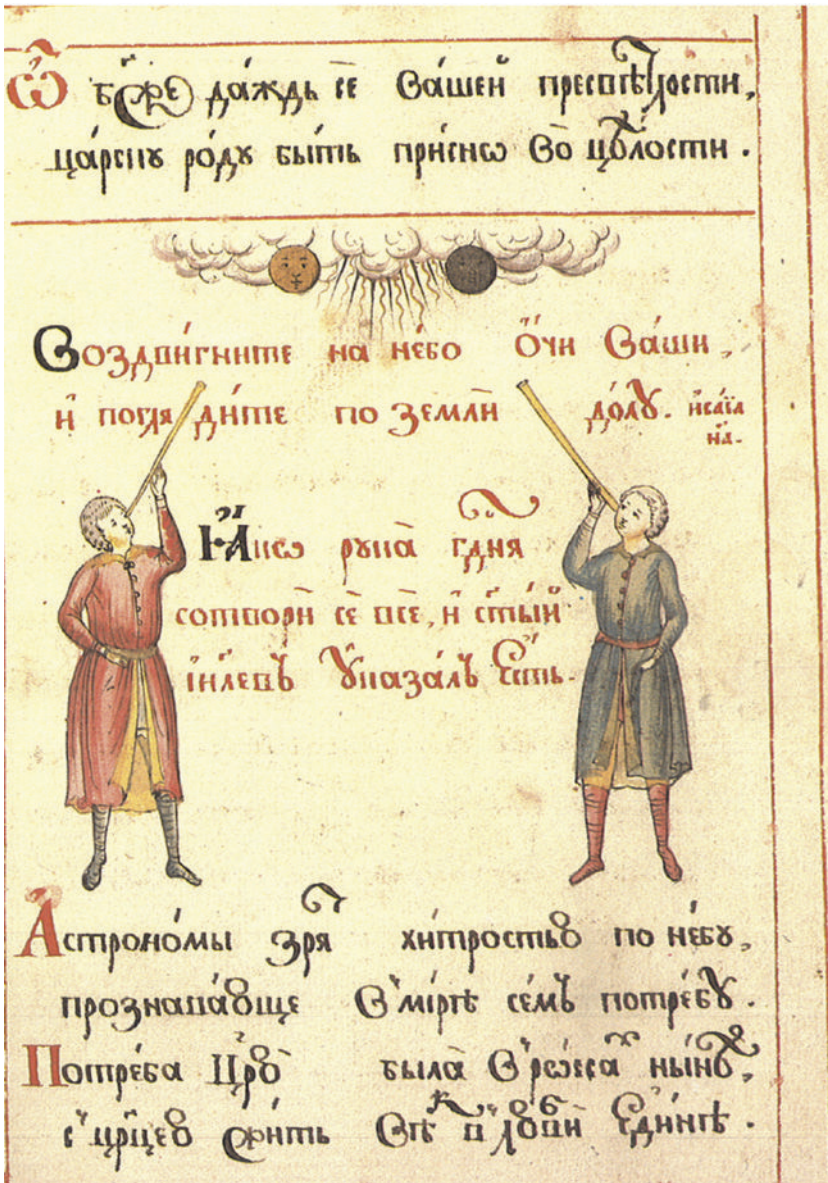 Ѽ бж҃е да́ждь сѐ ва́шей пресвѣ́тлости,
ца́рскꙋ ро́дꙋ бы́ть при́снѡ во̀ цѣ́лости.
Воздви́гните на не́бо ѻ҆́чи ва́ши,
и҆ погляди́те по землѝ до́лꙋ. и҆са́їа
н҃а.
Ꙗ҆́кѡ рꙋка̀ гдⷭ҇ня
сотворѝ сѐ всѐ, и҆ ст҃ы́й
і҆и҃левъ ᲂу҆каза́лъ є҆́сть.
Астроно́мы зря́ⷮ хи́тростью по не́бꙋ,
прознава́юще в̾ ми́рѣ се́мъ потре́бꙋ.
Потре́ба цр҃ю̀ была̀ в̾ рѡ́ссаⷯ ны́нѣ,
с̾ цр҃и́цею жи́ть въ любвѝ є҆ди́нѣ.